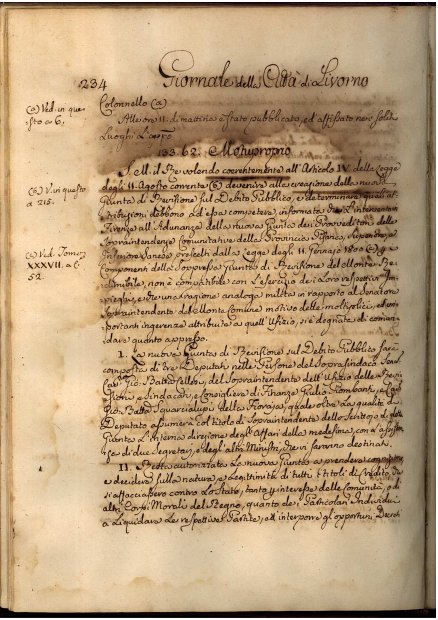 234
Giornale della Città di Livorno
(a) Ved. in que-
sto a 6.
Colonnello (a)
Alle ore 11. di mattina è stato pubblicato, ed affissato nei soliti
Luoghi L'app.o
133.62. Motuproprio
S. M. il Re volendo coerentemente all'Articolo IV. della Legge
degli 11. Agosto corrente (b) devenire alla creazione della nuova
(b) V. in questo
a 215.
Giunta di Revisione sul Debito Pubblico, e determinare quali at-
tribuzioni debbono ad essa competere, informata che L'intervento in
Firenze all'Adunanza della nuova Giunta dei Provveditori delle
Soprintendenze Comunitative della Provincia Pisana, Superiore, e
(c) Ved. Tomo
XXXVII. a C.
52.
Inferiore Sanese prescelti dalla Legge degli 11. Gennaio 1800 (c) a
Componenti della soppressa Giunta di Revisione del Monte Re-
dimibile, non è compatibile con L'esercizio dei Loro respettivi Im-
pieghi, e che una ragione analoga milita in rapporto al Senatore
Soprintendente del Monte Comune motivo delle molteplici, ed im-
portanti ingerenze attribuite a quell'Ufizio, si è degnata di coman-
dare quanto appresso.
1. La nuova Giunta di Revisione sul Debito Pubblico sarà
composta di tre Deputati nelle Persone del Soprasindaco Sen.
Cav. Gio. Batta Nelli, del Soprintendente dell'Ufizio delle Revi-
sioni, e Sindacati, e Consigliere di Finanze Giulio Piombanti, e
Gio. Batta Squarcialupi della Fioraja, quale oltre La qualità di
Deputato assumerà col titolo di Soprintendente dello Scrittojo di detta
Giunta L'interna direzione degli Affari della medesima, con L'assisten-
za di due Segretarj, e degli altri Ministri, che vi saranno destinati.
11. Resta autorizzata La nuova Giunta a prendere cognizione,
e decidere sulla natura, e Legittimità di tutti i titoli di Credito che
si affacciassero contro Lo Stato, tanto p. interesse delle Comunità, o di
altri Corpi Morali del Regno, quanto dei Particolari Individui
a Liquidare Le respettive Partite, ed interporre gl'opportuni Decreti